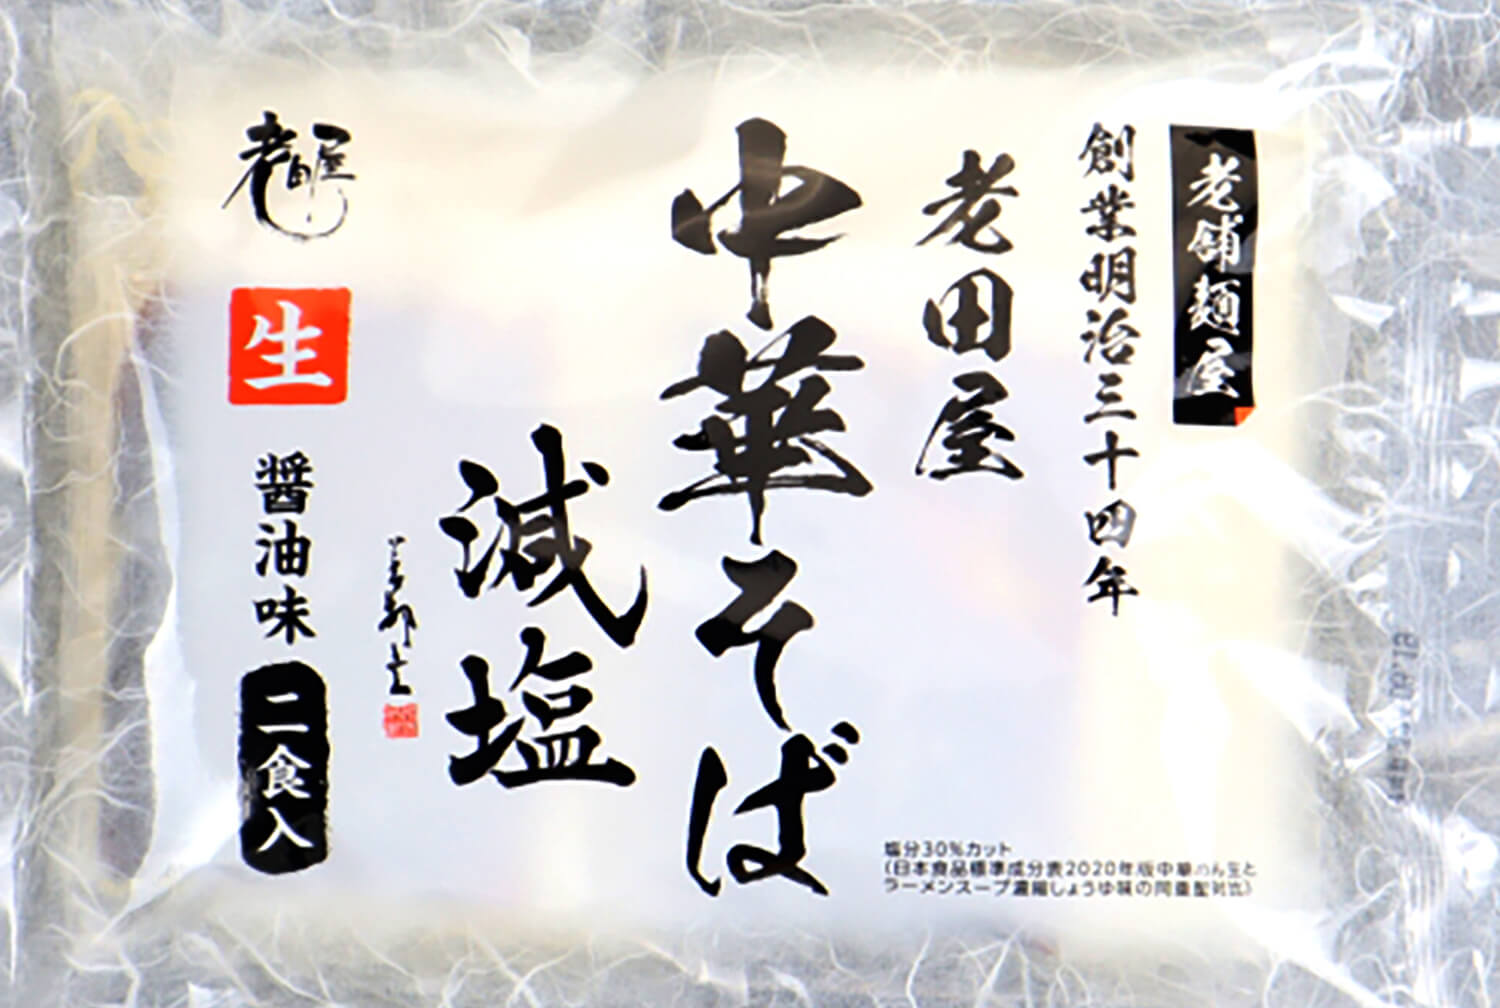 老舗麺屋
創業明治三十四年
老田屋
中華そば
減塩
老田屋
生
醤油味
二食入
塩分30%カット
(日本食品標準成分表2020年版中華めん生と
ラーメンスープ濃縮しょうゆ味の同重量対比)